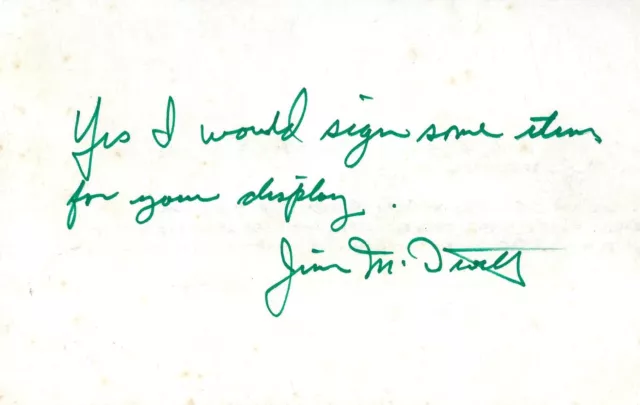 Yes I would sign some items
for your display.
Jim M.